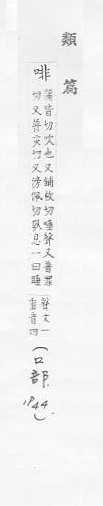 類篇
啡
蒲皆切吹也又鋪枚切唾聲又普罪
切又普亥切又滂佩切臥息一曰唾
聲文一
重音四
(口部